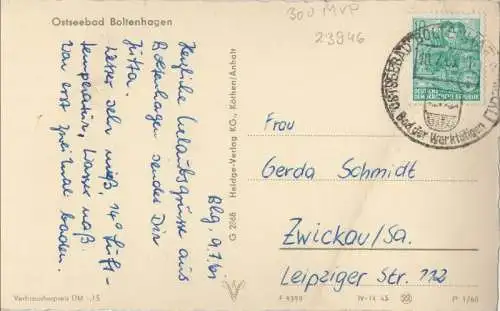 Ostseebad Boltenhagen
300 MVP
23946
Blg, 9.7.61
Herzliche Urlaubsgrüsse aus
Boltenhagen sendet Dir
Jutta.
Wetter sehr mies, 14° Luft-
temperatur, Wasser naß.
War erst zwei mal baden.
Verbraucherpreis DM -.15
G 2868 Heldge-Verlag KG., Köthen/Anhalt
OSTSEEBAD BOLTENHAGEN
Bad der Werktätigen
10
DEUTSCHE
DEMOKRATISCHE REPUBLIK
Frau
Gerda Schmidt
Zwickau/Sa.
Leipziger Str. 112
IV-14-45
P 1/60